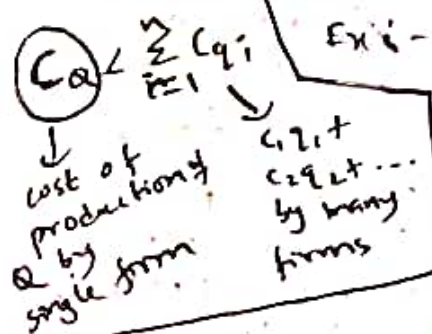 C_Q < Σ_{i=1}^{n} C_{q_i}
Ex:-
cost of
production of
Q by
single firm
c₁q₁+
c₂q₂+ ...
by many
firms